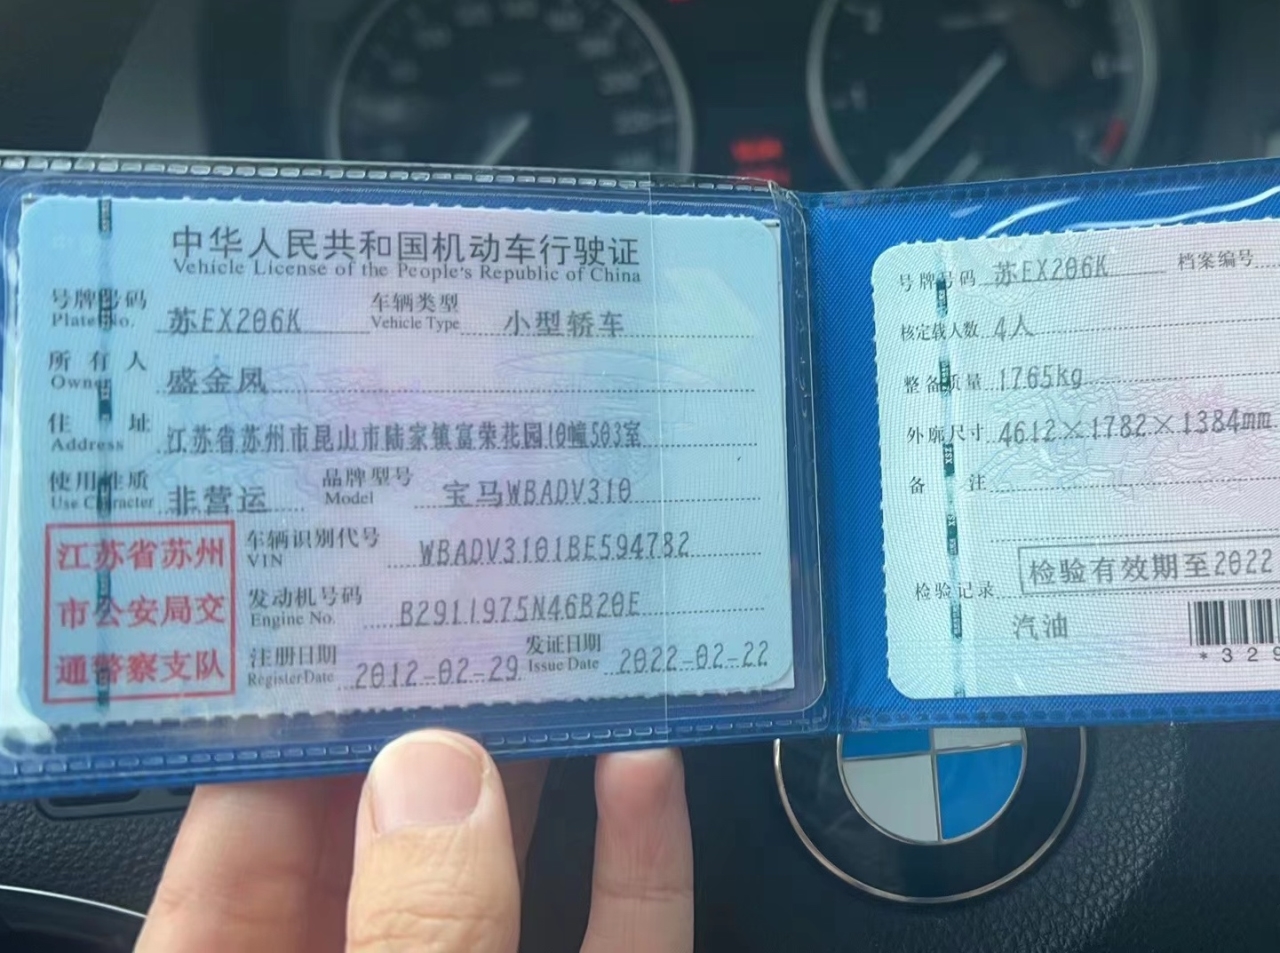 中华人民共和国机动车行驶证
Vehicle License of the People's Republic of China
号牌号码 苏EX206K 车辆类型 小型轿车
Plate No. Vehicle Type
所有人 盛金凤
Owner
住址 江苏省苏州市昆山市陆家镇富荣花园10幢503室
Address
使用性质 非营运 品牌型号 宝马WBADV310
Use Character Model
江苏省苏州
市公安局交
通警察支队
车辆识别代号 WBADV3101BE594782
VIN
发动机号码 B2911975N46B20E
Engine No.
注册日期 2012-02-29 发证日期 2022-02-22
Register Date Issue Date
号牌号码 苏EX206K 档案编号
核定载人数 4人
整备质量 1765kg
外廓尺寸 4612×1782×1384mm
备注
检验有效期至2022
检验记录
汽油
*329